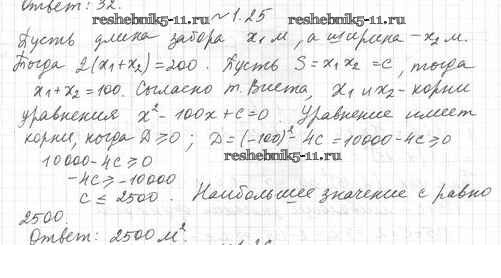 Ответ: 32.
reshebnik5-11.ru
№1.25
Пусть длина забора x₁ м, а ширина – x₂ м.
Тогда 2(x₁+x₂)=200. Пусть S=x₁x₂=c, тогда
x₁+x₂=100. Согласно т. Виета, x₁ и x₂ - корни
уравнения x²-100x+c=0. Уравнение имеет
корни, когда D≥0; D=(-100)²-4c=10000-4c≥0
10000-4c≥0 reshebnik5-11.ru
-4c≥-10000
c≤2500. Наибольшее значение c равно
2500.
Ответ: 2500 м².
reshebnik5-11.ru